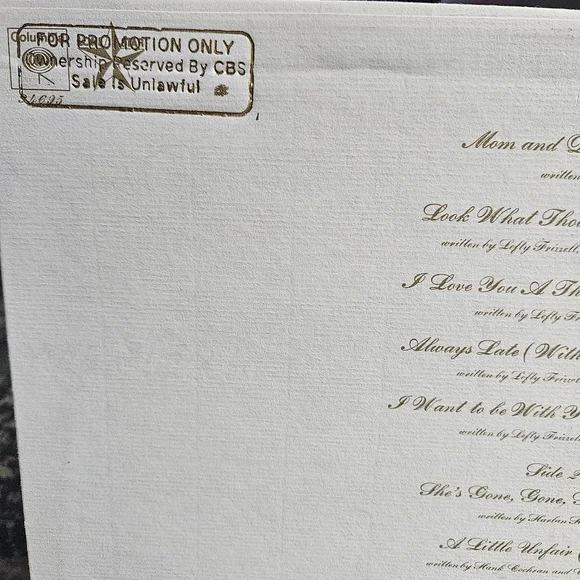 Columbia
FOR PROMOTION ONLY
Ownership Reserved By CBS
Sale Is Unlawful
34695
Mom and
written
Look What Tho
written by Lefty Frizzell,
I Love You A Th
written by Lefty Fr
Always Late (With
written by Lefty Frizze
I Want to be With Y
written by Lefty Frizzell
Side
She's Gone, Gone,
written by Harlan
A Little Unfair (
written by Hank Cochran and